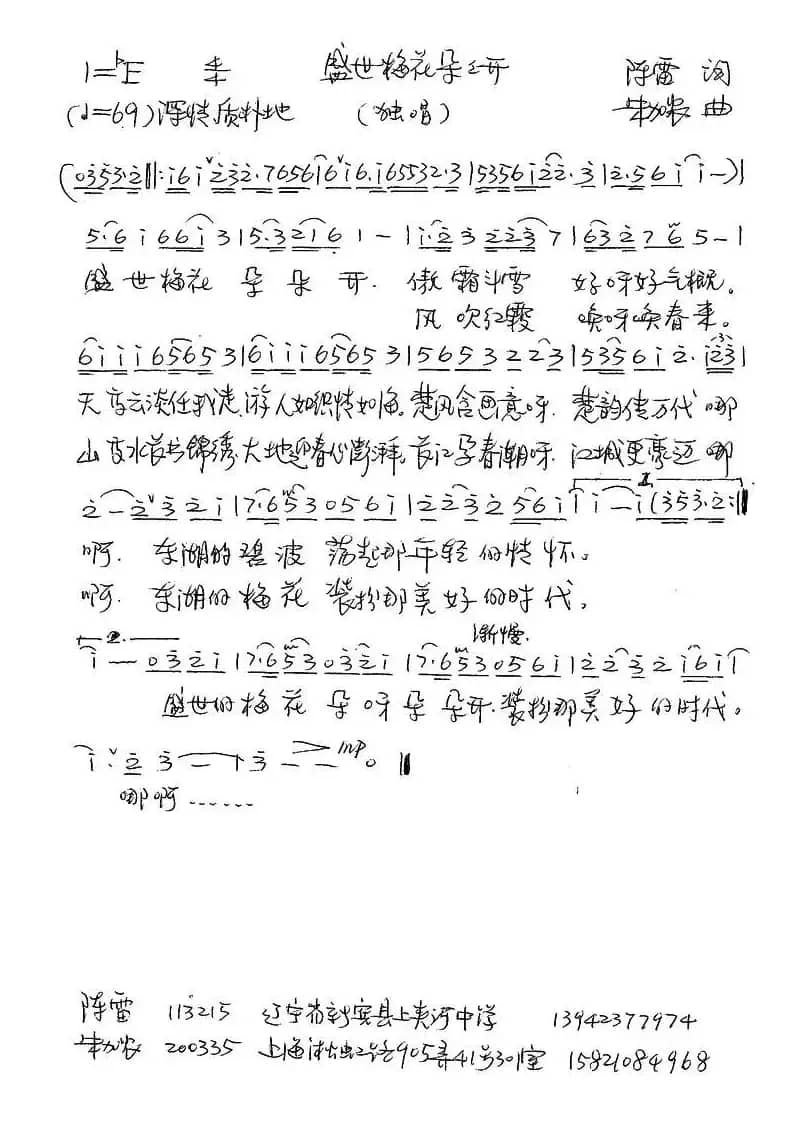 1=♭E 4/4 盛世梅花朵朵开 陈雷 词
(♩=69)深情质朴地 (独唱) 朱加农 曲
(0353·2‖:i6i232·7656|6i6·i65532·3|5356i22·3|2·56ii-)|
5·6i66i3|5·32161-|i·232237|632765-|
盛世梅花朵朵开. 傲霜斗雪 好呀好气概。
风吹红霞 唤呀唤春来。
6iii65653|6iii65653|565322 3|53556i2·i23|
天高云淡任我走,游人如织情如海。楚风含画意呀. 楚韵传万代哪
山高水长书锦绣,大地迎春心澎湃,长江孕春潮呀. 江城更豪迈哪
2-232i|7·653056i|223256i|i-i(353·2:‖
啊. 东湖的碧波 荡起那年轻的情怀。
啊. 东湖的梅花 装扮那美好的时代。
2. 渐慢.
i--032i|7·653032i|7·653056i|2232i6i|
盛世的梅花朵呀朵朵开.装扮那美好的时代。
i·23-|3--0‖ mp
哪啊……
陈雷 113215 辽宁省新宾县上夹河中学 13942377974
朱加农 200335 上海 905弄41号301室 15821084968